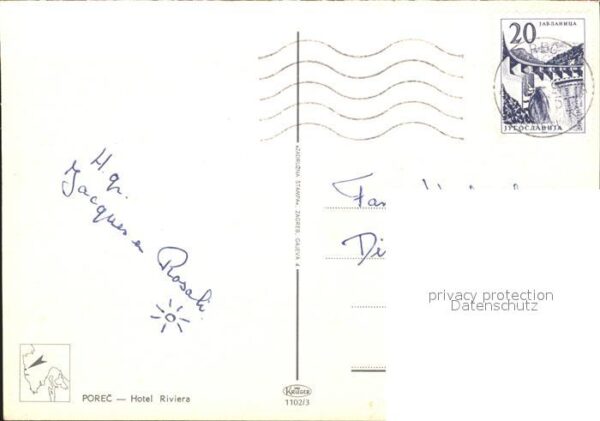 20
ЈАБЛАНИЦА
ЈУГОСЛАВИЈА
H. gr.
Jacques en
Rosali.
»ZADRUŽNA ŠTAMPA«, ZAGREB, GAJEVA 4
Fam
Di
privacy protection
Datenschutz
POREČ — Hotel Riviera
KRÜGER
1102/3